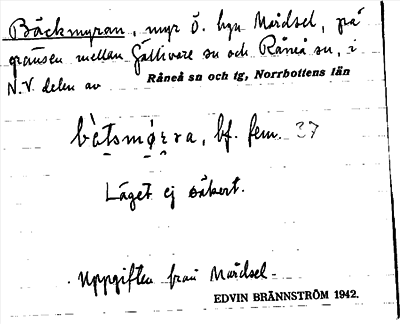 Bäckmyran, myr Ö. byn Mårdsel, på
gränsen mellan Gällivare sn och Råneå sn, i
N.V. delen av Råneå sn och tg, Norrbottens län
bə̀tsmørra, bf. fem. 37
Läget ej säkert.
Uppgiften från Mårdsel-
EDVIN BRÄNNSTRÖM 1942.